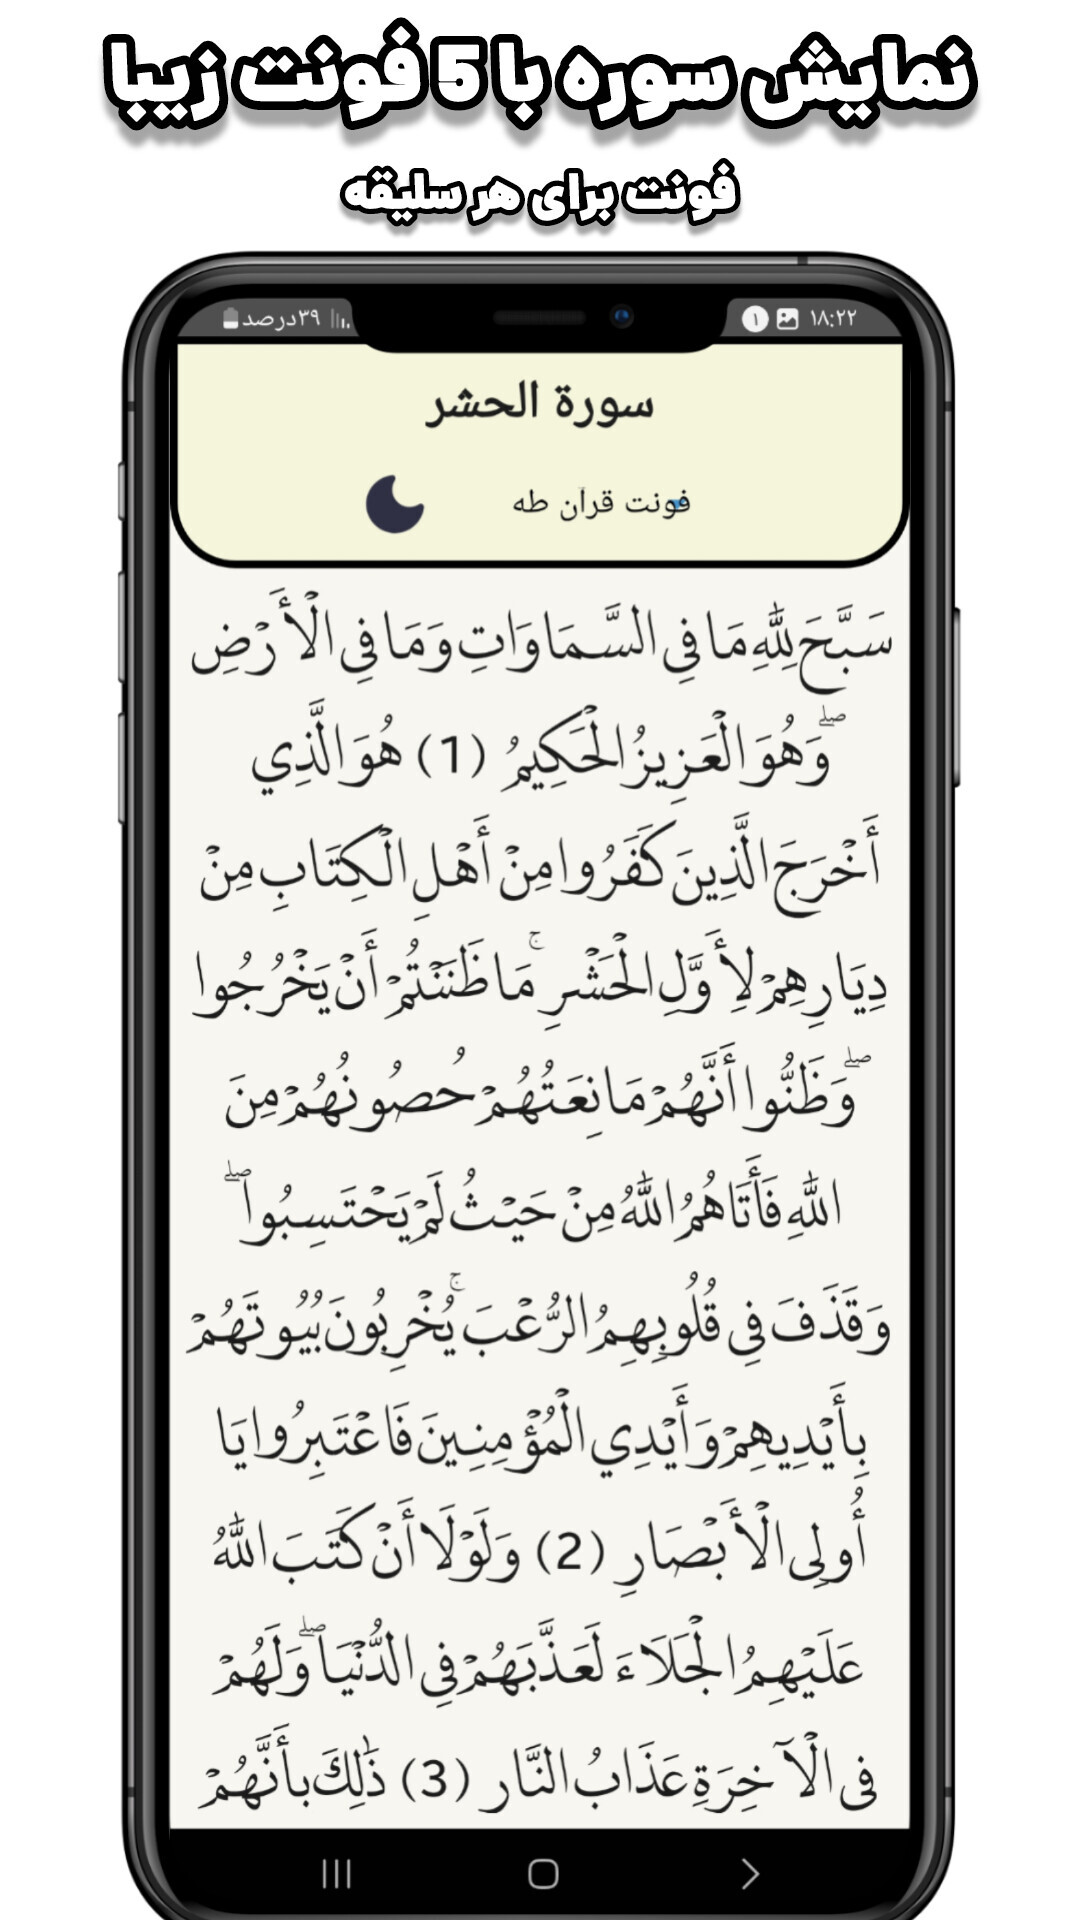 نمایش سوره با 5 فونت زیبا
فونت برای هر سلیقه
۱۸:۲۲ ۱ ۳۹درصد
سورة الحشر
فونت قرآن طه
سَبَّحَ لِلَّهِ مَا فِي السَّمَاوَاتِ وَمَا فِي الْأَرْضِ
ۖ وَهُوَ الْعَزِيزُ الْحَكِيمُ (1) هُوَ الَّذِي
أَخْرَجَ الَّذِينَ كَفَرُوا مِنْ أَهْلِ الْكِتَابِ مِنْ
دِيَارِهِمْ لِأَوَّلِ الْحَشْرِ ۚ مَا ظَنَنْتُمْ أَنْ يَخْرُجُوا
ۖ وَظَنُّوا أَنَّهُمْ مَانِعَتُهُمْ حُصُونُهُمْ مِنَ
اللَّهِ فَأَتَاهُمُ اللَّهُ مِنْ حَيْثُ لَمْ يَحْتَسِبُوا ۖ
وَقَذَفَ فِي قُلُوبِهِمُ الرُّعْبَ ۚ يُخْرِبُونَ بُيُوتَهُمْ
بِأَيْدِيهِمْ وَأَيْدِي الْمُؤْمِنِينَ فَاعْتَبِرُوا يَا
أُولِي الْأَبْصَارِ (2) وَلَوْلَا أَنْ كَتَبَ اللَّهُ
عَلَيْهِمُ الْجَلَاءَ لَعَذَّبَهُمْ فِي الدُّنْيَا ۖ وَلَهُمْ
فِي الْآخِرَةِ عَذَابُ النَّارِ (3) ذَٰلِكَ بِأَنَّهُمْ